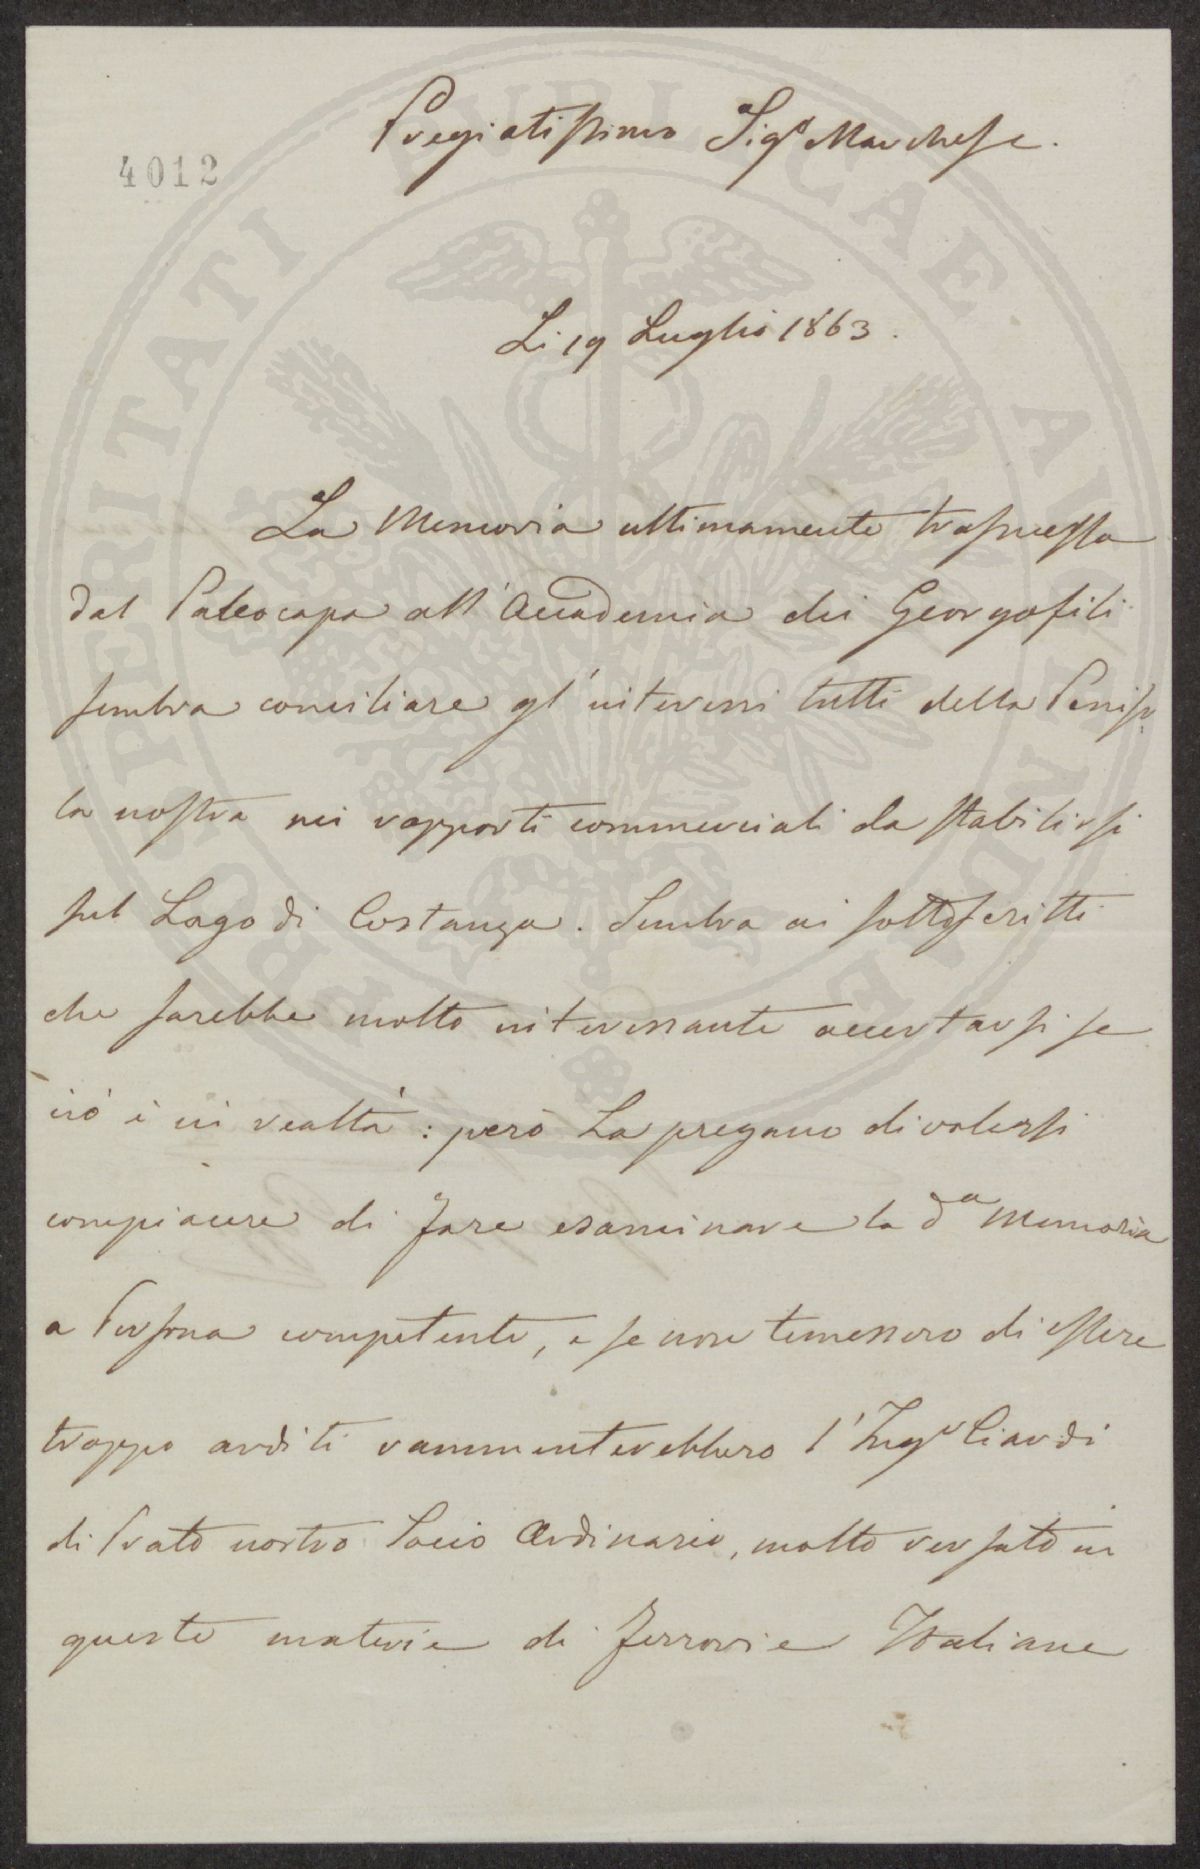 Pregiatissimo Sigr Marchese.
4012
Li 19 Luglio 1863.
La Memoria ultimamente trasmessa
dal Paleocapa all'Accademia dei Georgofili
sembra conciliare gl'interessi tutti della Peniso
la nostra nei rapporti commerciali da stabilirsi
sul Lago di Costanza. Sembra ai sottoscritti
che sarebbe molto interessante accertarsi se
ciò è in realtà: però La pregano di volersi
compiacere di fare esaminare la da Memoria
a Persona competente, e se non temessero di essere
troppo arditi rammenterebbero l'Ingr Ciardi
di Prato nostro Socio Ordinario, molto versato in
queste materie di Ferrovie Italiane
PROSPERITATI PUBLICAE AUGENDAE